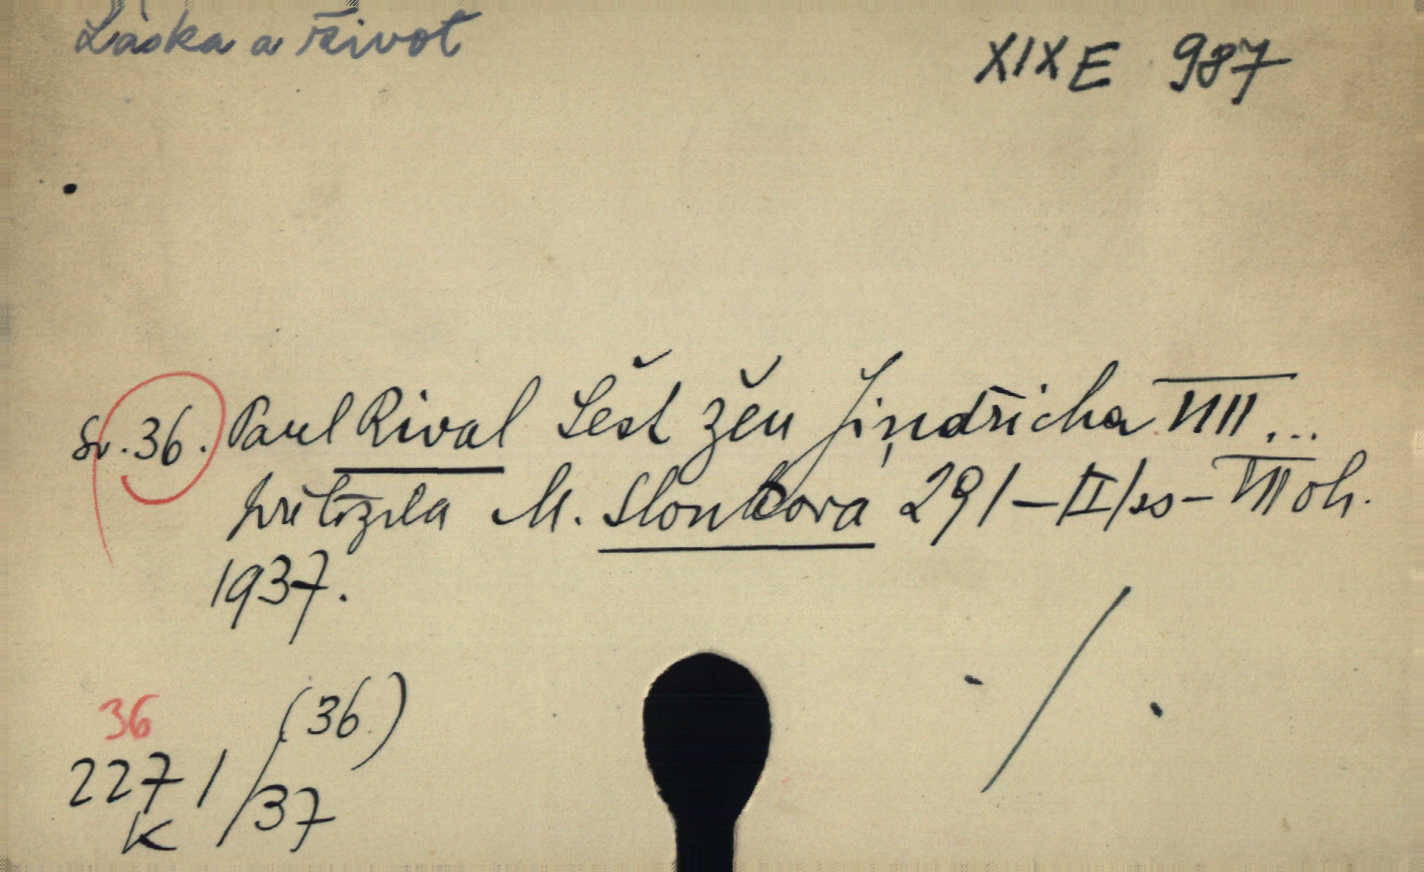 Láska a život
XIX E 987
Sv. 36. Paul Rival Šest žen Jindřicha VIII...
přeložila M. Sloukova 291-II/ss- VIII oh.
1937.
36
(36)
2271/37
K